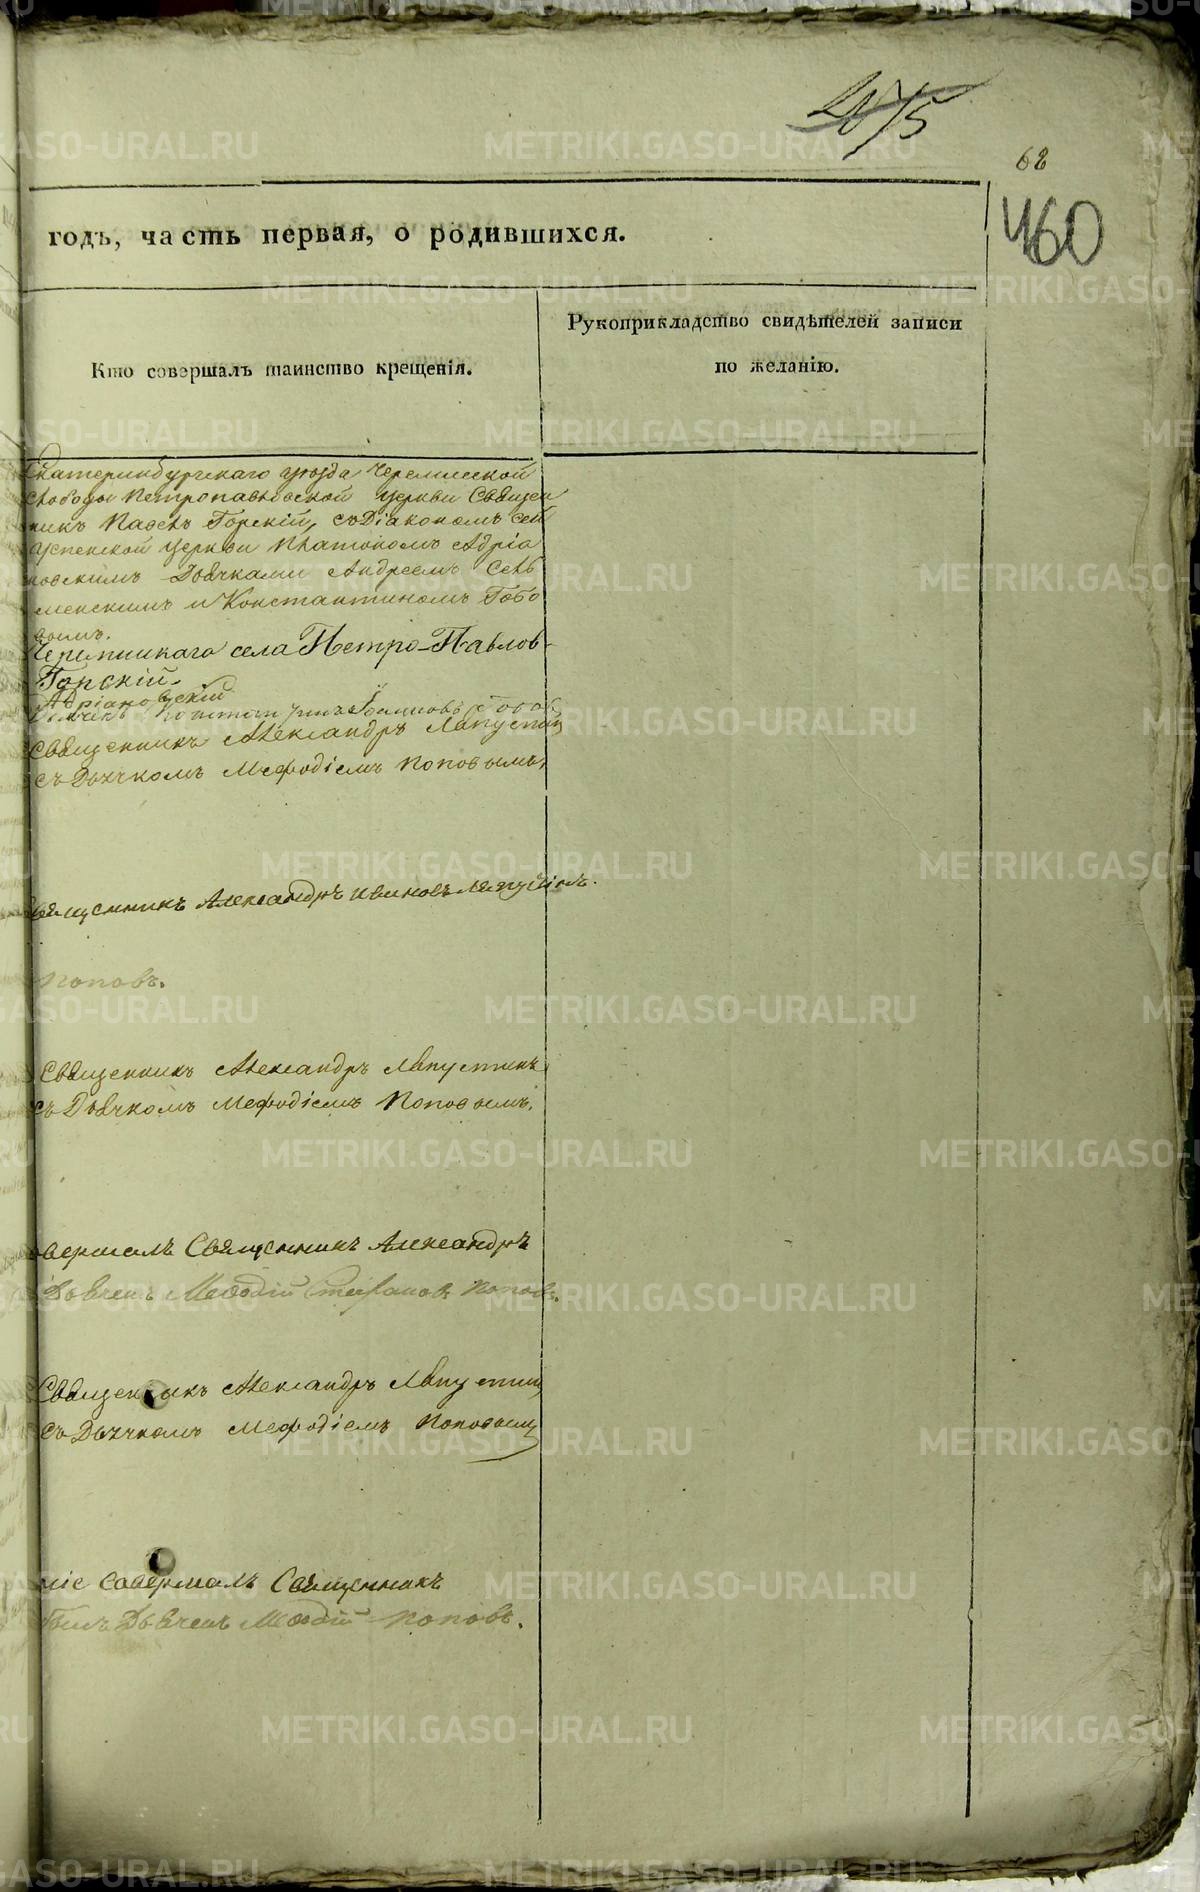 68
460
годъ, часть первая, о родившихся.
Кто совершалъ таинство крещенія.
Рукоприкладство свидѣтелей записи
по желанію.
Екатеринбургскаго уѣзда Черемисской
слободы Петропавловской церкви Священ
никъ Павелъ Горскій, съ Діакономъ сей
Успенской церкви Платономъ Адріа
новскимъ Дьячками Андреемъ Сель
менскимъ и Константиномъ Гобо
вымъ.
села Петро-Павлов-
Горскій
Адріановскій
Дьячекъ
Священникъ Александръ Ляпустин
съ Дьячкомъ Мефодіемъ Поповымъ,
Священникъ Александръ Ивановъ Ляпустинъ.
Поповъ.
Священникъ Александръ Ляпустинъ
съ Дьячкомъ Мефодіемъ Поповымъ,
вершалъ Священникъ Александръ
Дьячекъ Мефодій Стефановъ Поповъ.
Священникъ Александръ Ляпустин
съ Дьячкомъ Мефодіемъ Поповым
ніе совершалъ Священникъ
былъ Дьячекъ Мефодій Поповъ.
METRIKI.GASO-URAL.RU